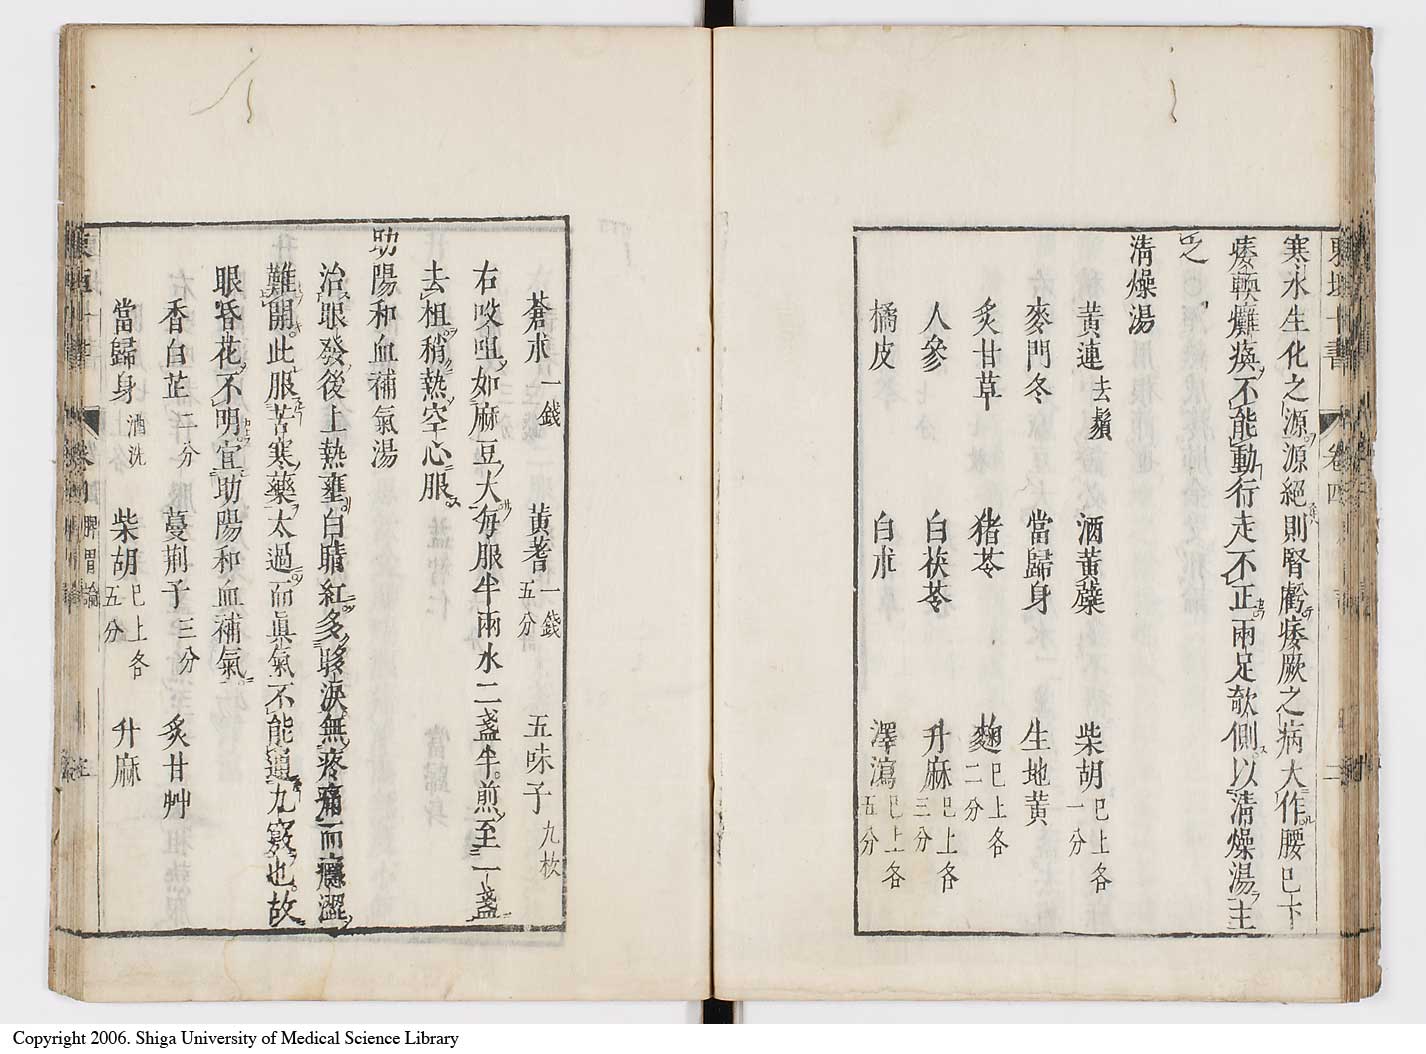 寒水生化之源源絕則腎虧痿厥之病大作腰已下
痿軟癱瘓不能動行走不正兩足欹側以清燥湯主
之
清燥湯
黃連去鬚 酒黃蘗 柴胡已上各一分
麥門冬 當歸身 生地黃
炙甘草 猪苓 麴已上各二分
人參 白茯苓 升麻已上各三分
橘皮 白朮 澤瀉已上各五分
蒼朮一錢 黃耆一錢五分 五味子九枚
右㕮咀如麻豆大每服半兩水二盞半煎至一盞
去柤稍熱空心服
助陽和血補氣湯
治眼發後上熱壅白睛紅多眵淚無疼痛而癮澀
難開此服苦寒藥太過而眞氣不能通九竅也故
眼昏花不明宜助陽和血補氣
香白芷二分 蔓荊子三分 炙甘艸
當歸身酒洗 柴胡已上各五分 升麻
東垣十書 卷四 脾胃論
Copyright 2006. Shiga University of Medical Science Library